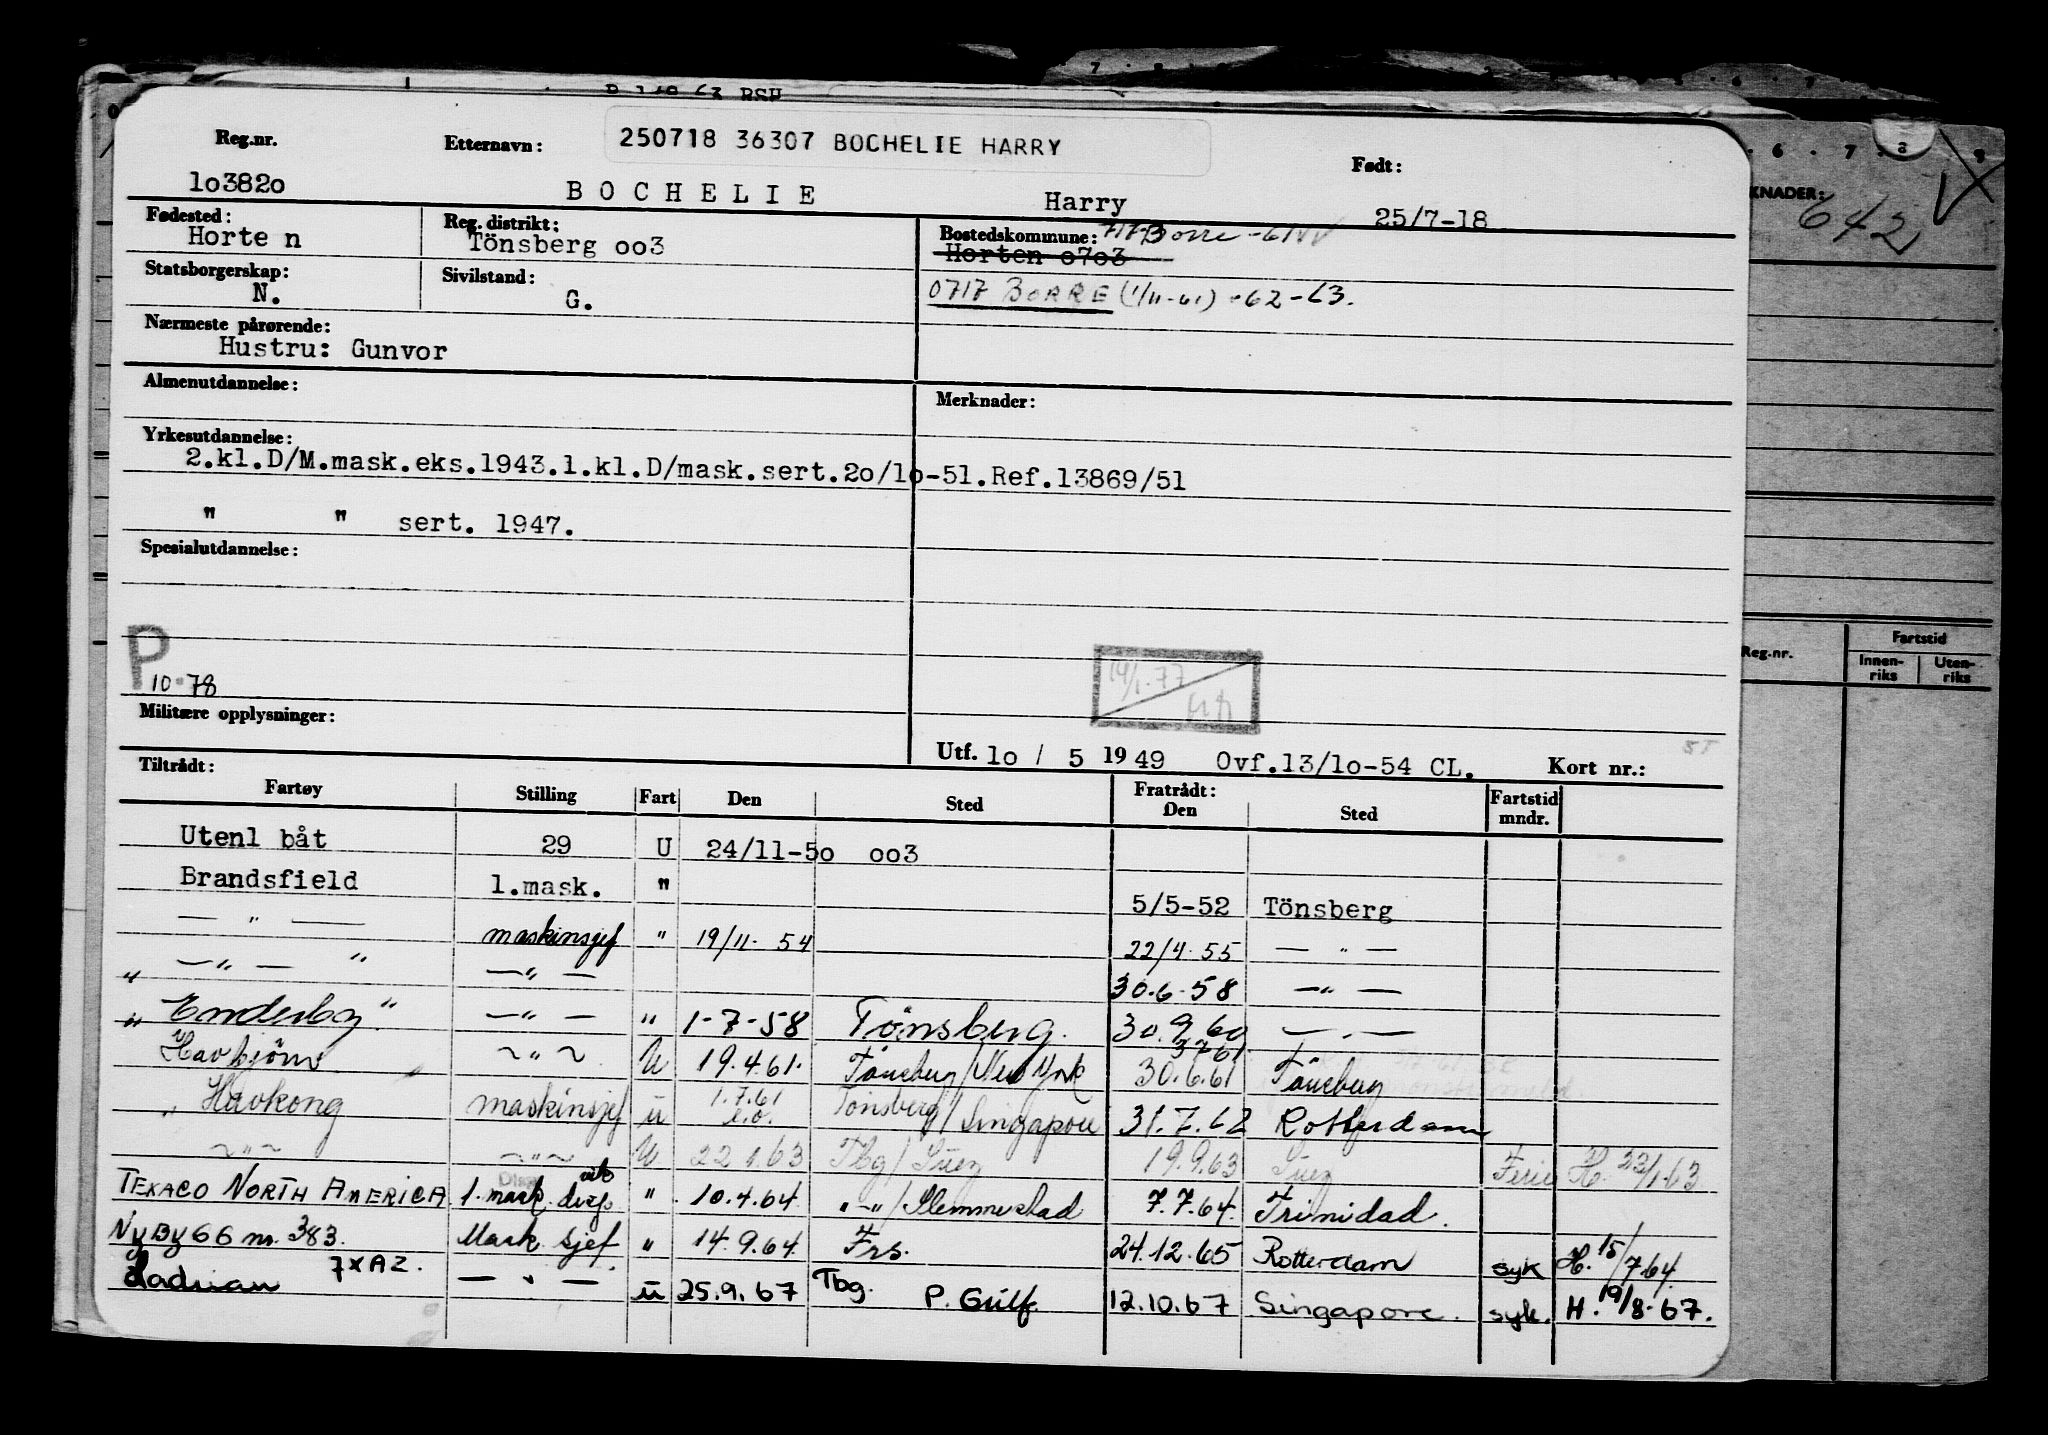 250718 36307 BOCHELIE HARRY
Reg.nr. Etternavn: Født:
1o382o BOCHELIE Harry 25/7-18
Fødested: Reg. distrikt: Bostedskommune: Borre -61
Horten Tönsberg oo3 Horten o7o3
Statsborgerskap: Sivilstand:
N. G. 0717 BORRE (1/11-61) -62-63.
Nærmeste pårørende:
Hustru: Gunvor
Almenutdannelse: Merknader:
Yrkesutdannelse:
2.kl.D/M.mask.eks.1943.1.kl.D/mask.sert.2o/1o-51.Ref.13869/51
" " sert. 1947.
Spesialutdannelse:
P
10-78
14/1-77
Militære opplysninger:
Utf. 1o / 5 1949 Ovf.13/1o-54 CL. Kort nr.:
Tiltrådt: Fratrådt:
Fartøy Stilling Fart Den Sted Den Sted Fartstid mndr.
Utenl båt 29 U 24/11-5o oo3
Brandsfield 1.mask. " 5/5-52 Tönsberg
— " — maskinsjef " 19/11- 54 22/4-55 — " —
" — " — " — " — 30.6-58 — " —
" Enderby " — " — " 1-7-58 Tönsberg. 30.9.60 — " —
Havbjörn ~ " ~ U 19.4.61. Tönsberg/New York 30.6.61 3761 Tönsberg
" Havkong maskinsjef u 1.7.61 Tönsberg/Singapore 31.7.62 Rotterdam
~ " ~ ~ " ~ U 22.1.63 Tbg/Suez 19.9.63 Suez Ferie H. 23/1-63
TEXACO NORTH AMERICA 1. mask " 10.4.64. " - " /Slemmestad 7.7.64. Trinidad.
Nybygg nr. 383. Mask. sjef. " 14.9.64. Frs. 24.12.65 Rotterdam syk H. 15/7.64.
7XAZ.
— " — u 25.9.67 Tbg. P. Gulf. 12.10.67 Singapore. syk. H. 19/8-67.
KNADER:
642
Reg.nr. Fartstid
Innenriks Utenriks